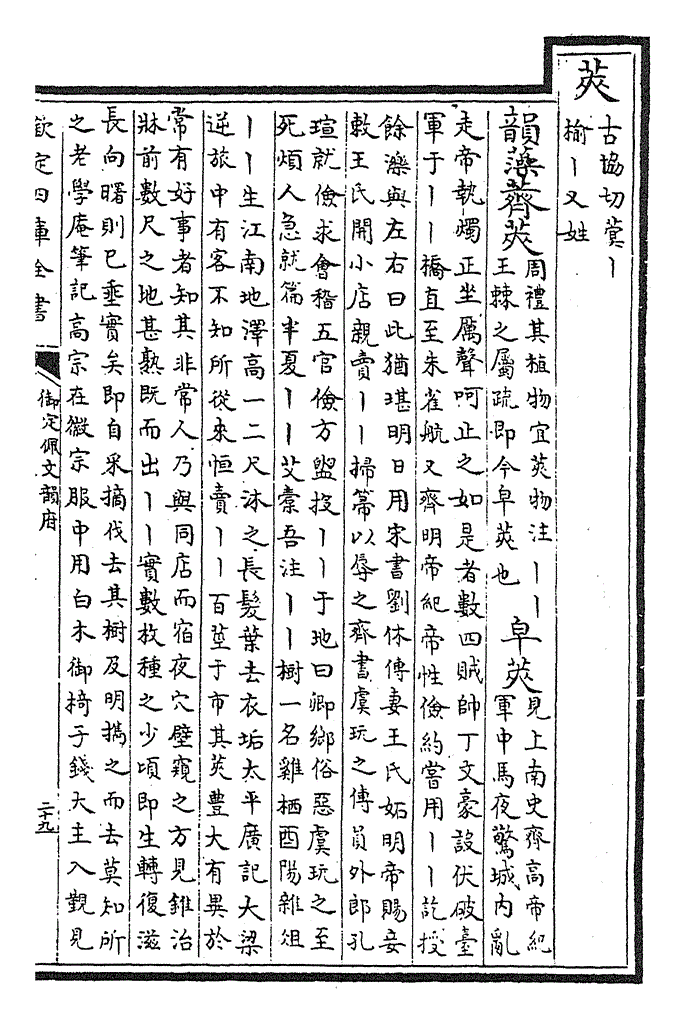 莢
古協切蓂丨
榆丨又姓
韻藻薺莢周禮其植物宜莢物注丨丨
王棘之屬疏即今皁莢也
皁莢見上南史齊高帝紀
軍中馬夜驚城内亂
走帝執燭正坐厲聲呵止之如是者數四賊帥丁文豪設伏破臺
軍于丨丨橋直至朱雀航又齊明帝紀帝性儉約嘗用丨丨訖授
餘灤與左右曰此猶堪明日用宋書劉休傳妻王氏妬明帝賜妾
敕王氏開小店親賣丨丨掃箒以辱之齊書虞玩之傳員外郎孔
瑄就儉求會稽五官儉方盥投丨丨于地曰卿鄉俗惡虞玩之至
死煩人急就篇半夏丨丨艾橐吾注丨丨樹一名雞栖酉陽雜俎
丨丨生江南地澤高一二尺沐之長髮葉去衣垢太平廣記大梁
逆旅中有客不知所從來恒賣丨丨百莖于市其莢豐大有異於
常有好事者知其非常人乃與同店而宿夜穴壁窺之方見鉏治
牀前數尺之地甚熟既而出丨丨實數枚種之少頃即生轉復滋
長向曙則已垂實矣即自采摘伐去其樹及明攜之而去莫知所
之老學庵筆記高宗在徽宗服中用白木御椅子錢大主入覲見
欽定四庫全書
御定佩文韻府
二十九